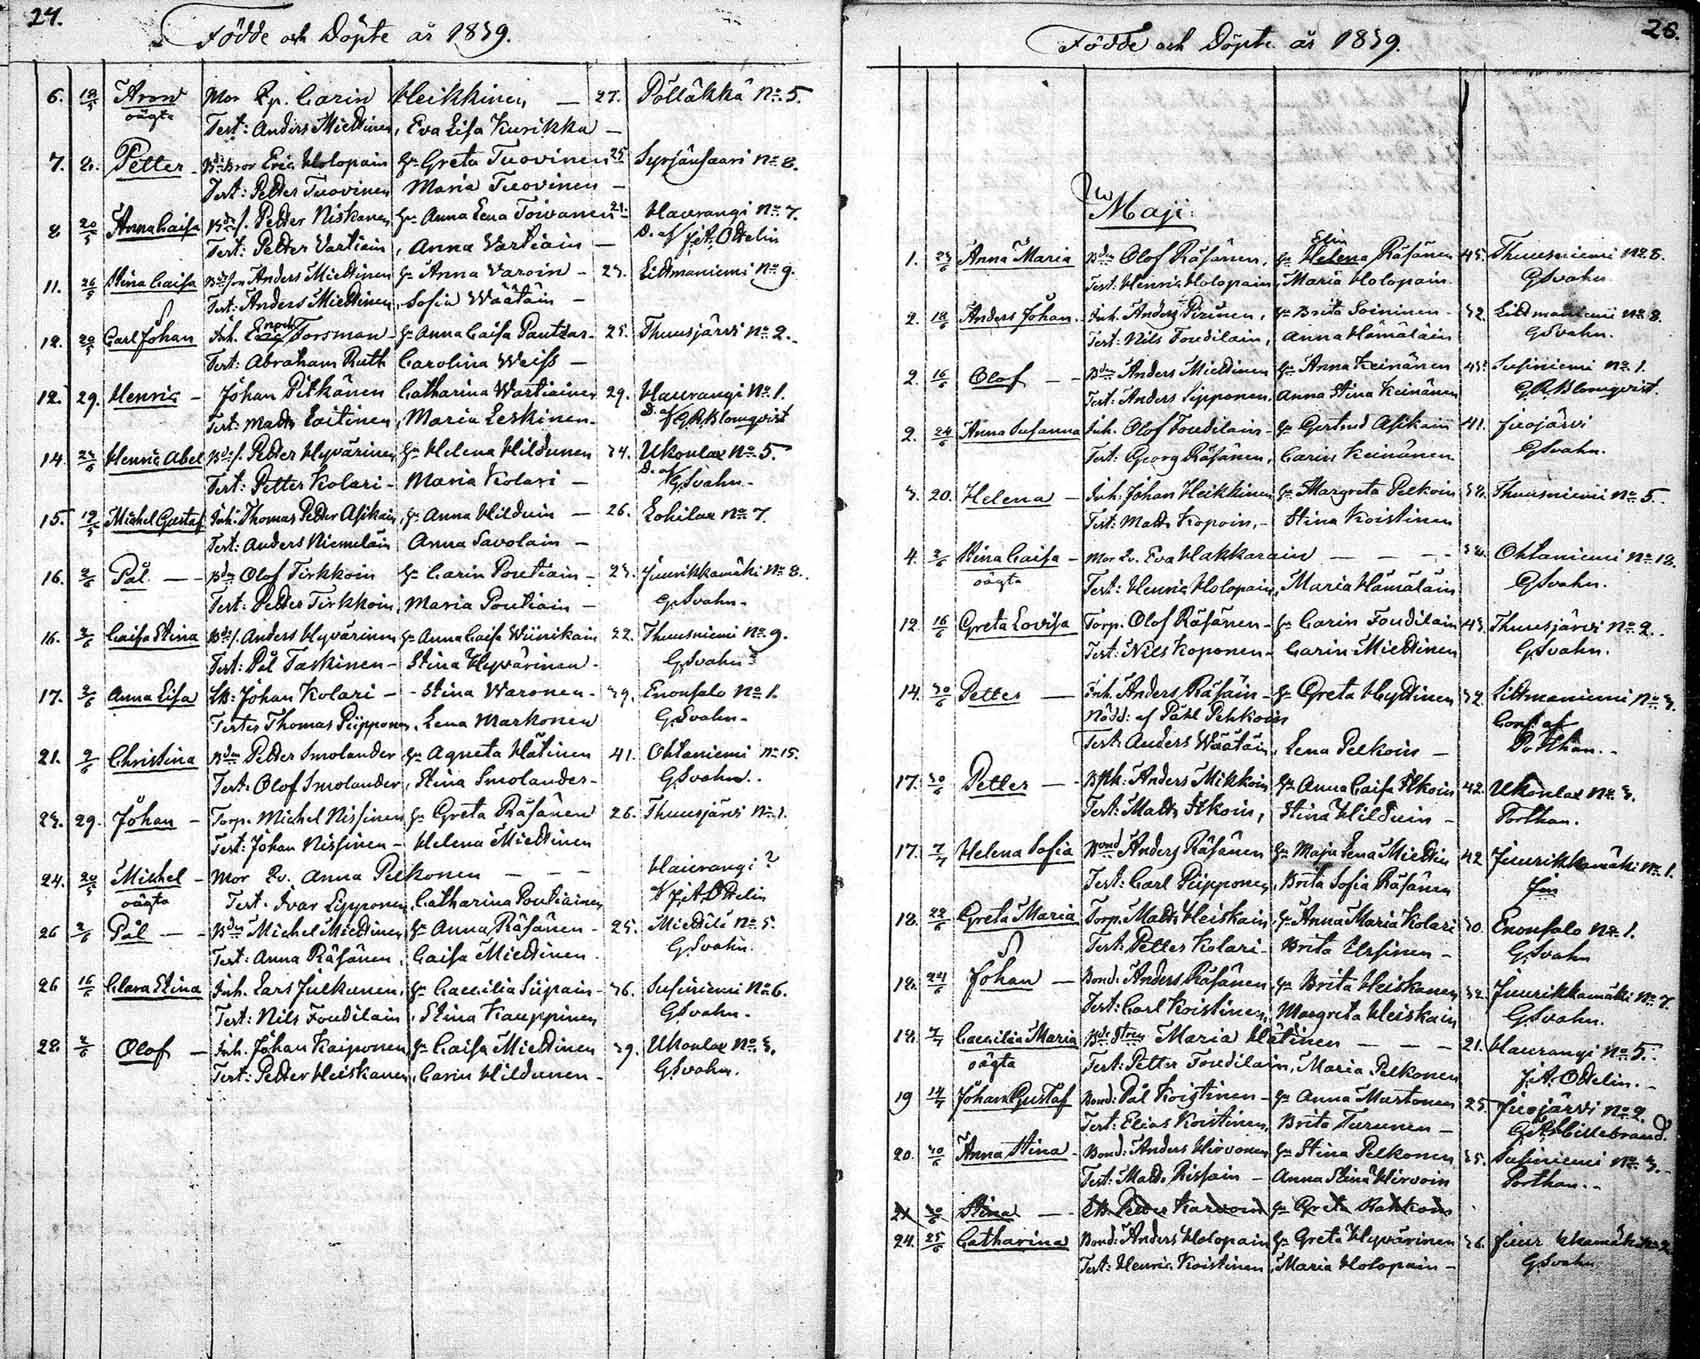 24.
Födde och Döpte år 1839.
6. 12/5 Aron Mor Pp. Carin Heikkinen — 27. Pölläkkä No 5.
oägta Test: Anders Miettinen, Eva Lisa Kurikka —
7. Petter Eric Holopain Hu Greta Tuovinen 25 Syrjänsaari No 8.
Test: Petter Tuovinen Maria Tuovinen —
8 20/5 Anna Caisa Petter Niskanen Hu Anna Lena Toivanen 21. Haurangi No 7.
Test: Petter Vartiain, Anna Vartiain — D. af J. A. Ottelin
11. 26/5 Stina Caisa Anders Miettinen Hu Anna Varoin - 23. Litmaniemi No 9.
Test: Anders Miettinen, Sofia Wäätäin —
12 Carl Johan Inh. Enoch Forsman — Hu Anna Caisa Pautsar - 25. Thuusjärvi No 2.
Test: Abraham Ruth Carolina Weiss —
12. 29. Henric - Johan Pitkänen Catharina Wartiainen 29. Haurangi No 1.
Test: Matts Laitinen, Maria Leskinen - D. af G. R. Blomqvist
14 Henric Abel Petter Hyvärinen Hu Helena Hildunen 34. Ukonlax No 5.
Test: Petter Kolari - Maria Kolari — D. af G. Svahn -
15. 19/5 Michel Gustaf Inh: Thomas Petter Asikain, Hu Anna Hilduin — 26. Lohilax No 7
Test: Anders Niemeläin Anna Savolain —
16. 2/6 Pål — Olof Tirkkoin Hu Carin Poutiain - 23. Juurikkamäki No 8.
Test: Petter Tirkkoin, Maria Poutiain — G. Svahn -
16. 2/6 Caisa Stina Anders Hyvärinen Hu Anna Caisa Wiinikain 22. Thuusniemi No 9.
Test: Pål Taskinen — Stina Hyvärinen - G. Svahn
17. 2/6 Anna Lisa Johan Kolari — - Stina Waronen - 39. Enonsalo No 1.
Testes Thomas Piipponen, Lena Markonen G. Svahn -
21. 2/6 Christina Petter Smolander Hu Agneta Hätinen 41. Ohtaniemi No 15.
Test: Olof Smolander, Stina Smolander - G. Svahn.
23. 29. Johan - Torp. Michel Nissinen Hu Greta Räsänen 26. Thuusjärvi No 1.
Test: Johan Nissinen — Helena Miettinen
24. 20/5 Michel - Mor Anna Pelkonen — — — Haurangi ?
oägta Test. Ivar Lipponen, Catharina Poutiainen J. A. Ottelin
26 2/6 Pål — Michel Miettinen Hu Anna Räsänen - 25. Miettilä No 5.
Test: Anna Räsänen, Caisa Miettinen. G. Svahn.
26 16/6 Clara Stina Inh. Lars Julkunen, Hu Caecilia Siipain - 36. Susiniemi No 6.
Test: Nils Foudilain, Stina Kauppinen G. Svahn.
28. 2/6 Olof — Inh. Johan Kaiponen Hu Caisa Miettinen 39. Ukonlax No 3.
Test: Petter Heiskanen, Carin Hildunen - G. Svahn.
Födde och Döpte år 1839. 26.
Maji:
1. Anna Maria Olof Räsänen, Hu Helena Räsänen 45. Thuusniemi No 8.
Test. Henric Holopain, Maria Holopain G. Svahn.
2. 18/6 Anders Johan. Inh. Anders Pirinen, Hu Brita Soininen - 32. Litmaniemi No 8.
Test: Nils Foudilain, Anna Hämäläin G. Svahn.
2. 16/6 Olof — Anders Miettinen Hu Anna Keinänen 43. Susiniemi No 1.
Test: Anders Sipponen, Anna Stina Keinänen G. R. Blomqvist.
2. 24/6 Anna Susanna Inh. Olof Foudilain - Hu Gertrud Asikain 41. Juojärvi
Test: Georg Räsänen, Carin Keinänen G. Svahn.
3. 20. Helena — Inh. Johan Heikkinen Hu Margreta Pelkoin Thuusniemi No 5.
Test: Matts Kopoin, - Stina Koistinen
4. 2/6 Stina Caisa - Mor Eva Hakkarain — — — Ohtaniemi No 18.
oägta Test: Henric Holopain, Maria Hämäläin G. Svahn.
12 16/6 Greta Lovisa Torp. Olof Räsänen - Hu Carin Foudilain 43. Thuusjärvi No 2.
Test: Nils Koponen - Carin Miettinen G. Svahn.
14. 30/6 Petter — Inh. Anders Räsäin - Hu Greta Hyttinen 32. Litmaniemi No 3.
Nödd: af Påhl Pehkoin Conf. af
Test: Anders Wäätäin, Lena Pelkoin — Porthan.
17. 30/6 Petter — Anders Mikkoin Hu Anna Caisa Ilkoin 42. Ukonlax No 3.
Test: Matts Itkoin, Stina Hilduin - Porthan.
17. 7/7 Helena Sofia Bond: Anders Räsänen Hu Maja Lena Miettin 42 Juurikkamäki No 1.
Test: Carl Piipponen, Brita Sofia Räsänen
18. 22/6 Greta Maria Torp. Matts Heiskain, Hu Anna Maria Kolari 30. Enonsalo No 1.
Test: Petter Kolari - Brita Ursinen - G. Svahn
18. 24/6 Johan — Bond: Anders Räsänen Hu Brita Heiskanen 32. Juurikkamäki No 7.
Test: Carl Koistinen, Margreta Heiskain G. Svahn.
18. 7/7 Caecilia Maria Maria Hätinen — — — 21. Haurangi No 5.
oägta Test: Petter Foudilain, Maria Pelkonen J. A. Ottelin.
19 14/7 Johan Gustaf Bond: Pål Koistinen - Hu Anna Mustonen 25. Juojärvi No 2.
Test: Elias Koistinen, Brita Turunen - Hillebrand.
20. 30/6 Anna Stina - Bond: Anders Hirvonen Hu Stina Pelkonen 35. Susiniemi No 3.
Test: Matts Rissain - Anna Stina Hirvoin Porthan.
21 30/6 Stina — Petter Karvoin Hu Greta
24. 25/6 Catharina Bond: Anders Holopain Hu Greta Hyvärinen 36. Juurikkamäki No 2
Test: Henric Koistinen, Maria Holopain - G. Svahn